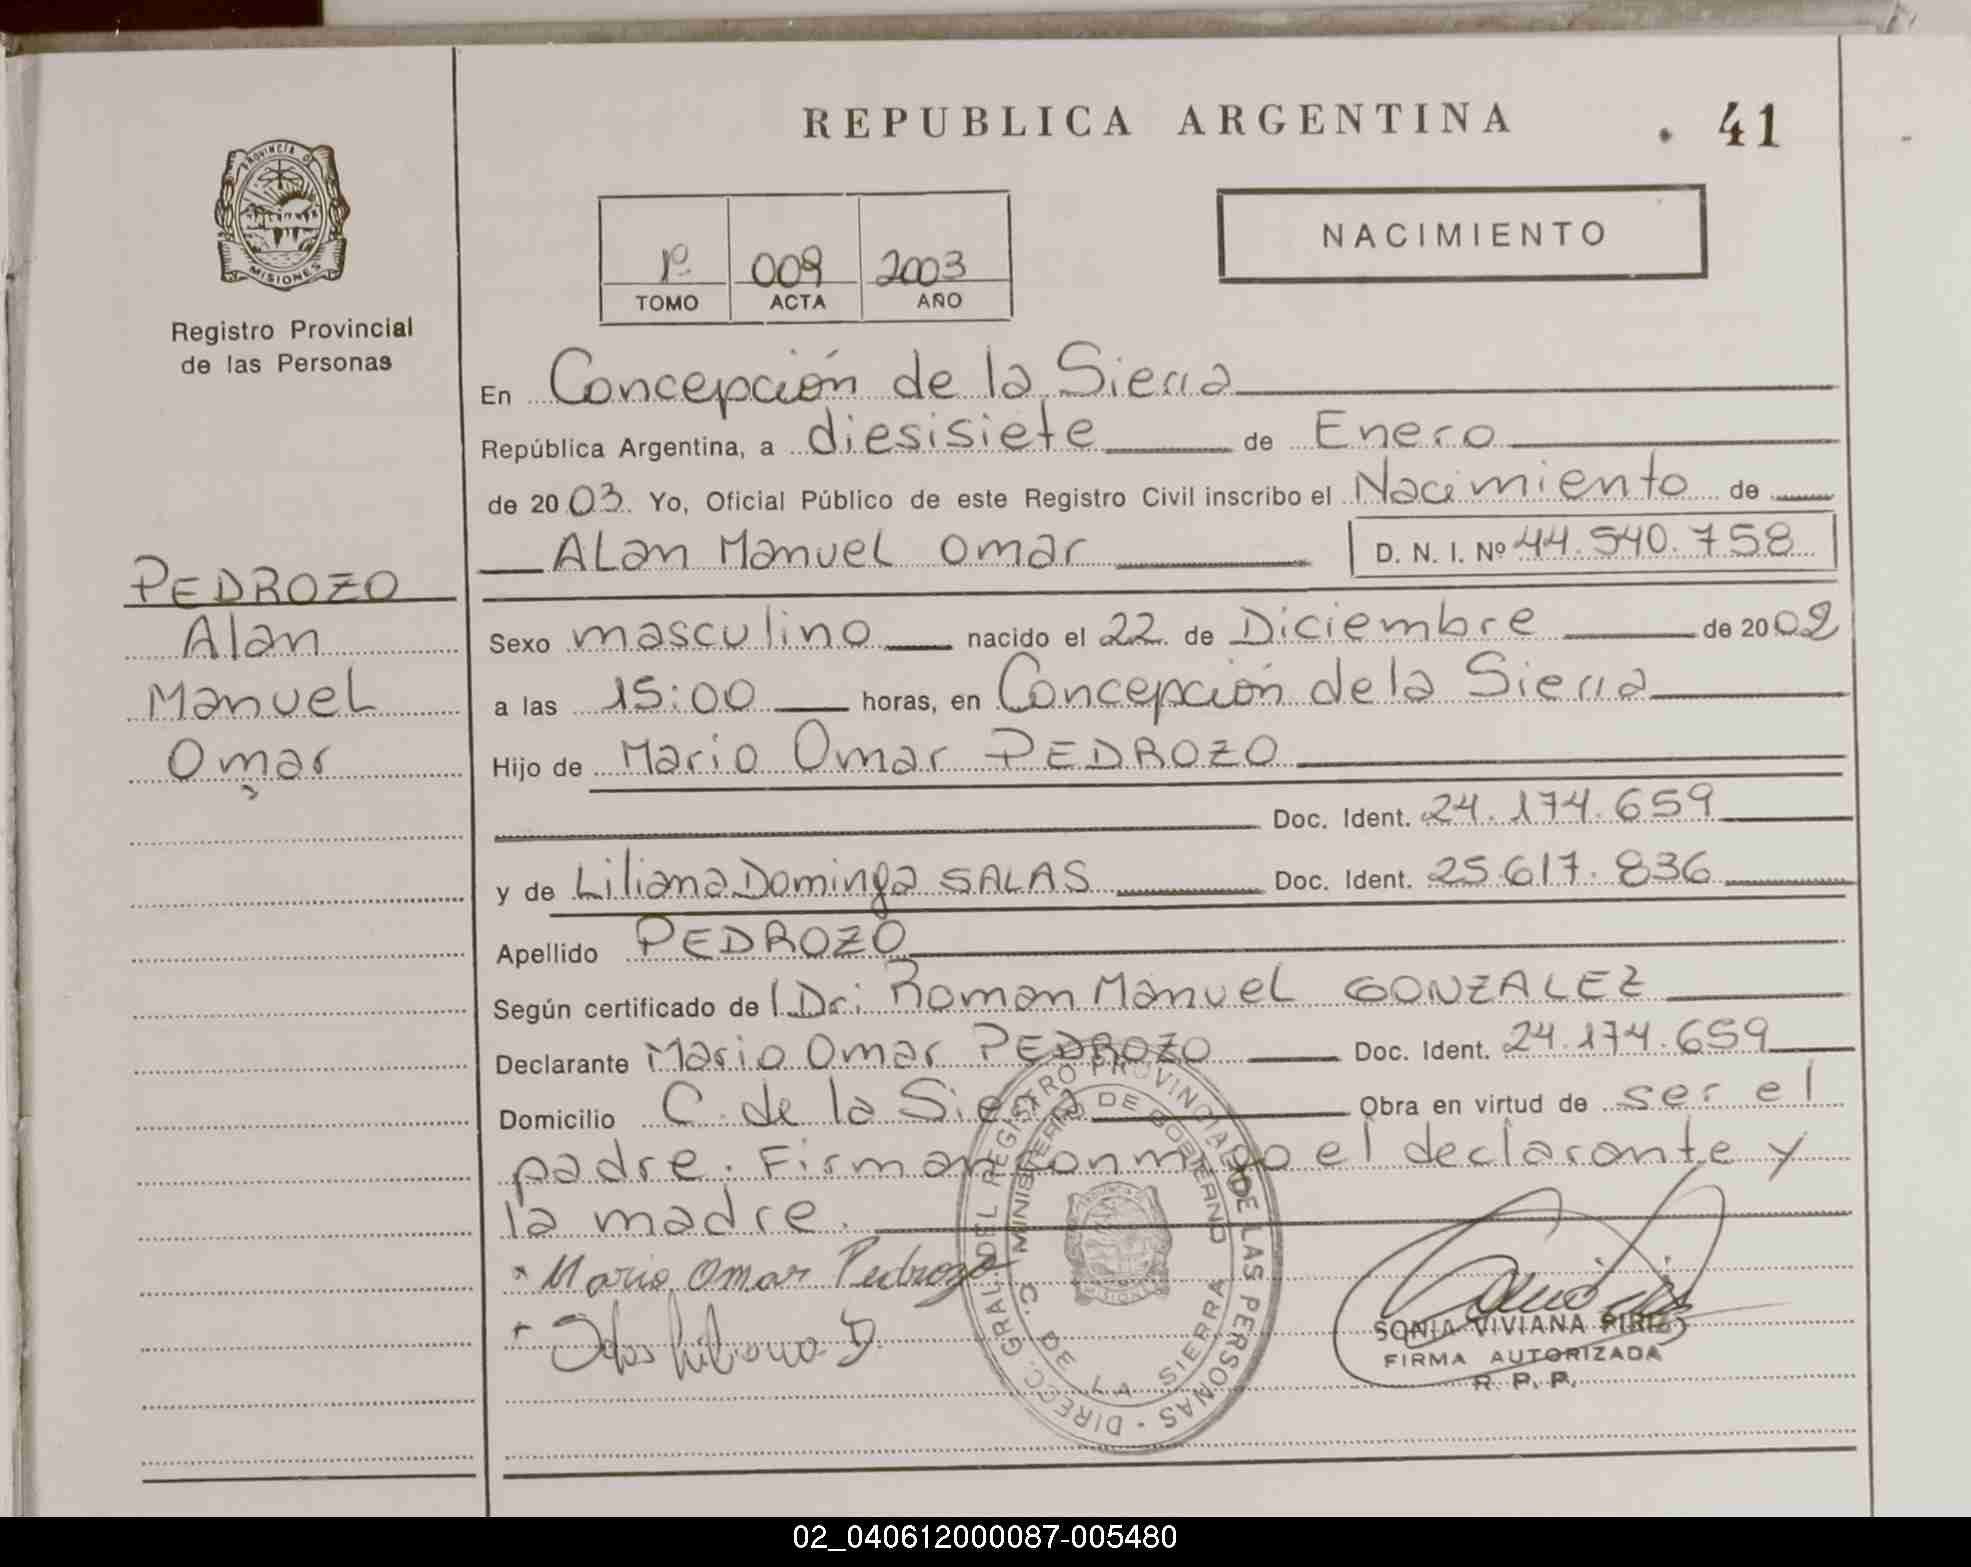 REPUBLICA ARGENTINA
41
PROVINCIA DE
MISIONES
Registro Provincial
de las Personas
1º 009 2003
TOMO ACTA AÑO
NACIMIENTO
En Concepción de la Sierra
República Argentina, a diesisiete de Enero
de 2003. Yo, Oficial Público de este Registro Civil inscribo el Nacimiento de
ALan Manuel Omar D. N. I. Nº 44.540.758
PEDROZO
Alan
Manuel
Omar
Sexo masculino nacido el 22 de Diciembre de 2002
a las 15:00 horas, en Concepción de la Sierra
Hijo de Mario Omar PEDROZO
Doc. Ident. 24.174.659
y de Liliana Dominga SALAS Doc. Ident. 25.617.836
Apellido PEDROZO
Según certificado de l Dr: Roman Manuel GONZALEZ
Declarante Mario Omar PEDROZO Doc. Ident. 24.174.659
Domicilio C. de la Sierra Obra en virtud de ser el
padre. Firman conmigo el declarante y
la madre.
Mario Omar Pedrozo
Salas Liliana D
DIRECC. GRAL. DEL REGISTRO PROVINCIAL DE LAS PERSONAS
MINISTERIO DE GOBIERNO
C. DE LA SIERRA
SONIA VIVIANA
FIRMA AUTORIZADA
R. P. P.
02_040612000087-005480